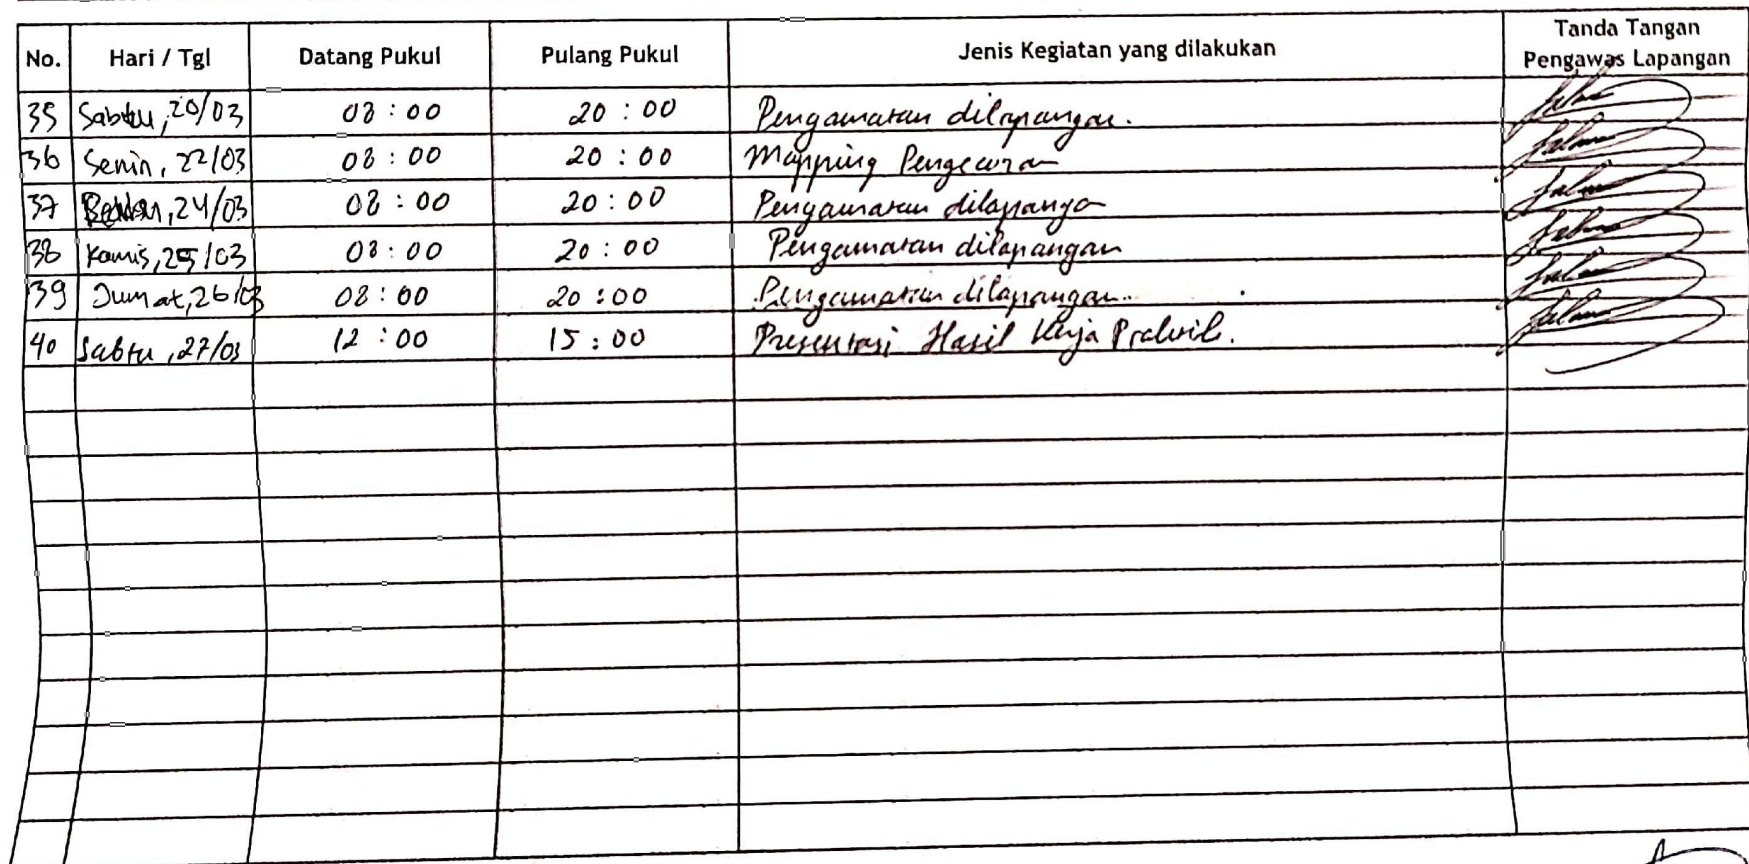 No. Hari / Tgl Datang Pukul Pulang Pukul Jenis Kegiatan yang dilakukan Tanda Tangan Pengawas Lapangan
35 Sabtu, 20/03 08 : 00 20 : 00 Pengamatan dilapangan.
36 Senin, 22/03 08 : 00 20 : 00 Mapping Pengecoran
37 24/03 08 : 00 20 : 00 Pengamatan dilapanga
38 Kamis, 25/03 08 : 00 20 : 00 Pengamatan dilapangan
39 Jumat, 26/03 08 : 00 20 : 00 Pengamatan dilapangan.
40 Sabtu, 27/03 12 : 00 15 : 00 Presentasi Hasil Kerja Praktik.